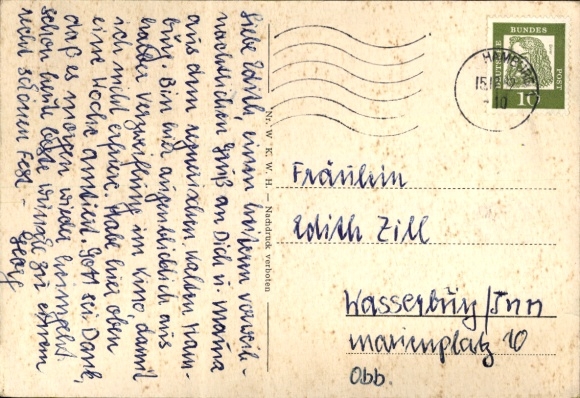 Liebe Edith, einen bis, verweil-
nachweihen Gruß an Dich u. Mama
aus dem regnerischen kalten Ham-
burg. Bin nur augenblicklich aus
halber Verzweiflung im Kino, damit
ich nicht erfriere. Habe hier oben
eine Woche amtiert. Gott sei Dank,
daß es morgen wieder heimgeht.
schon heute Gäste wünscht zu einem
recht schönen Fest -
Georg
Nr. W. K. W. H. — Nachdruck verboten
DEUTSCHE
BUNDES
POST
10
HAMBURG
15.12.
-10
Fräulein
Edith Zill
Wasserburg/Inn
Marienplatz 10
Obb.